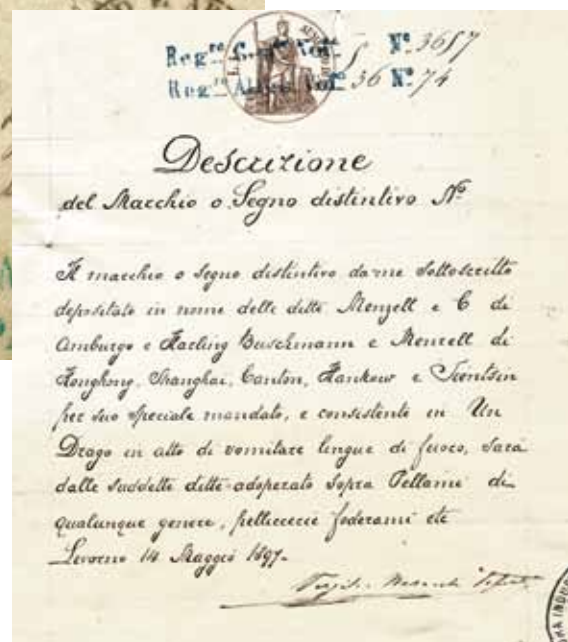 Reg.ro Gen.le Vol.e 5 N.o 3657
Reg.ro Vol.e 36 N.o 74
Descrizione
del Macchio o Segno distintivo No
Il macchio o segno distintivo da me sottoscritto
depositato in nome delle ditte Menzell e C di
Amburgo e Harling Buschmann e Menzell di
Hongkong, Shanghai, Canton, Hankow e Tientsin
per suo speciale mandato, e consistente in Un
Drago in atto di vomitare lingue di fuoco, sarà
dalle suddette ditte adoperato sopra Pellami di
qualunque genere, pelliccecie foderami etc
Livorno 14 Maggio 1897-